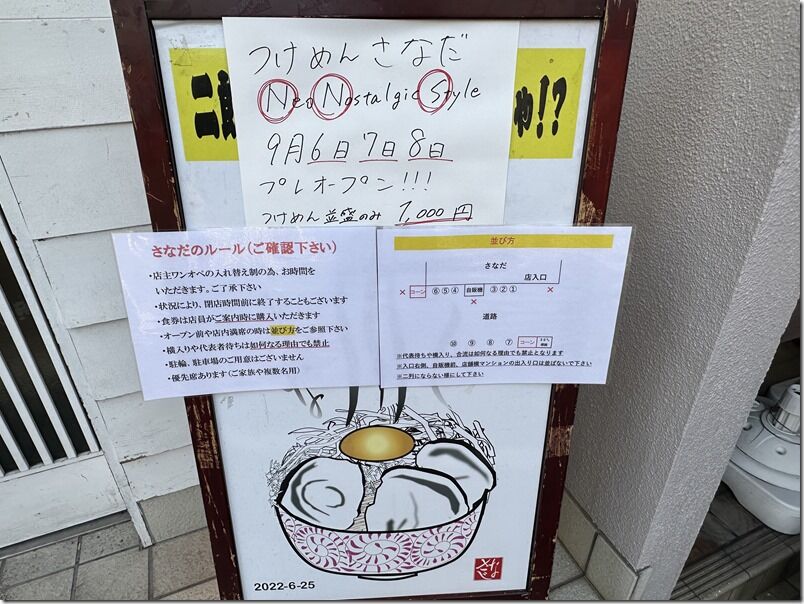 つけめんさなだ
Neo Nostalgic Style
9月6日7日8日
プレオープン!!!
つけめん並盛のみ 1,000円
二
物!?
さなだのルール(ご確認下さい)
・店主ワンオペの入れ替え制の為、お時間を
いただきます。ご了承下さい
・状況により、閉店時間前に終了することもございます
・食券は店員がご案内時に購入いただきます
・オープン前や店内満席の時は並び方をご参照下さい
・横入りや代表者待ちは如何なる理由でも禁止
・駐輪、駐車場のご用意はございません
・優先席あります(ご家族や複数名用)
並び方
さなだ
店入口
× コーン ⑥⑤④ 自販機 ③②① ×
×
道路
⑩ ⑨ ⑧ ⑦ コーン
※代表待ちや横入り、合流は如何なる理由でも禁止となります
※入口右側、自販機前、店舗横マンションの出入り口は並ばないで下さい
※二列にならない様にして下さい
2022-6-25
さなだ